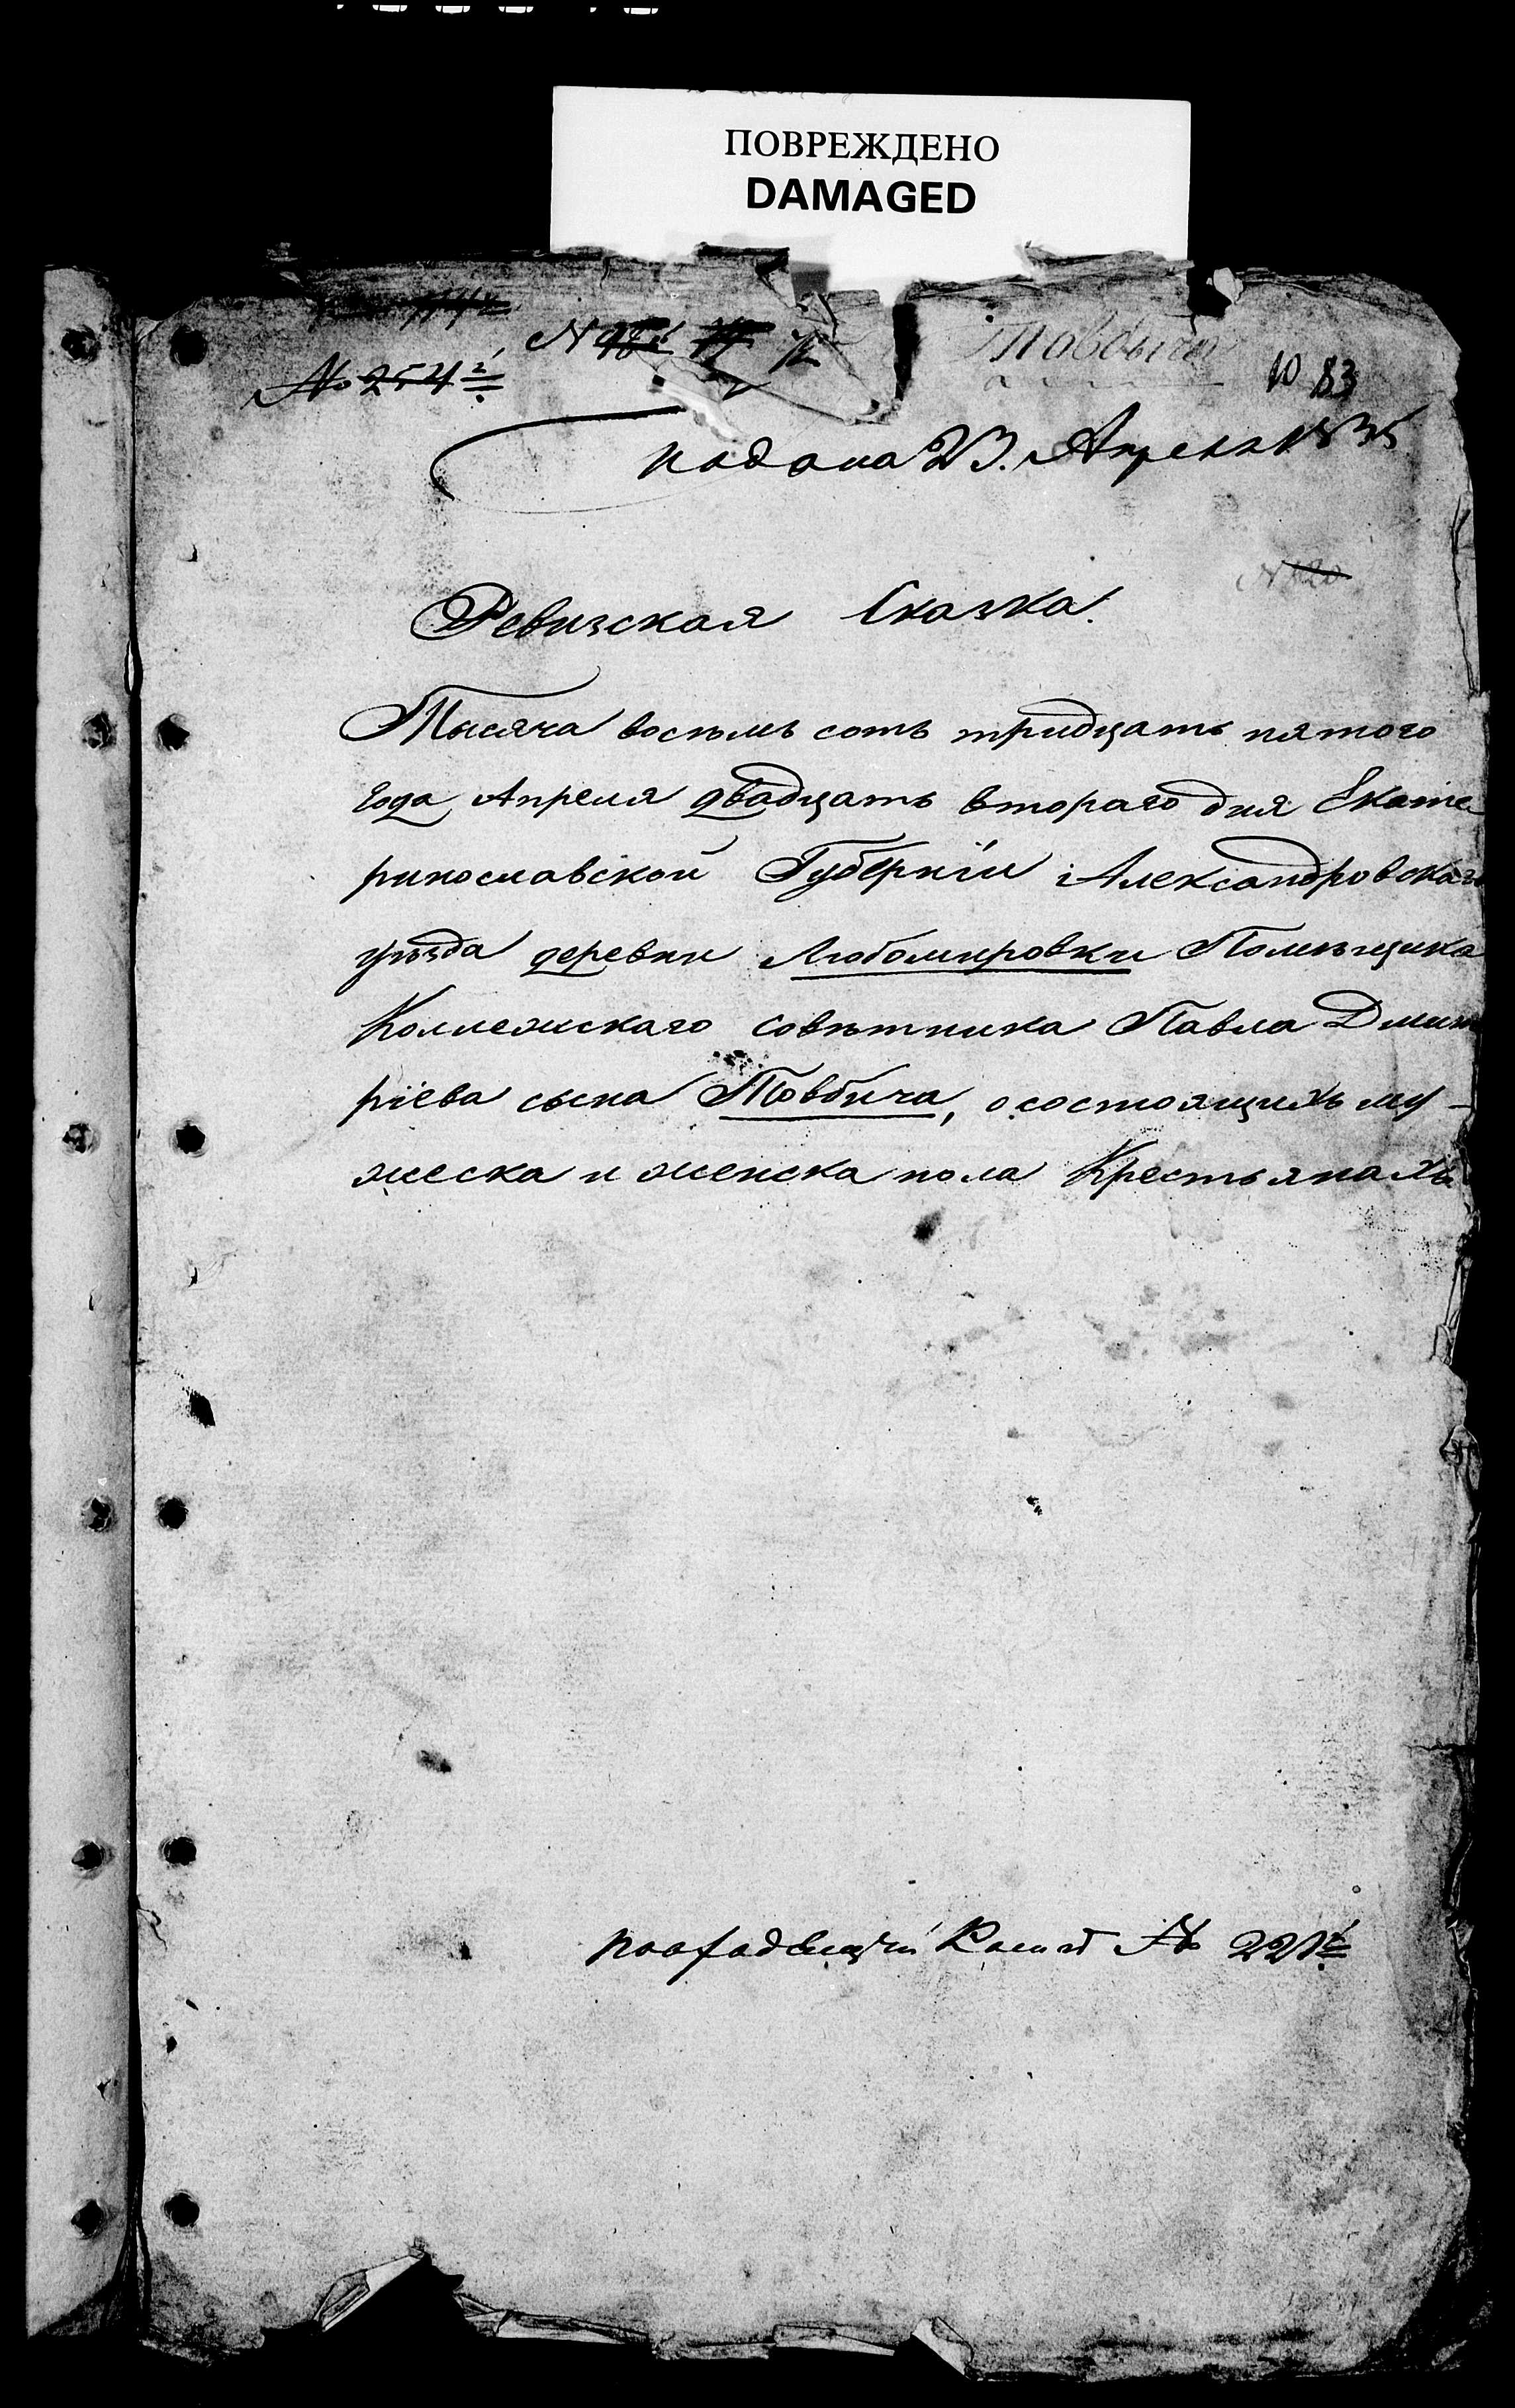 ПОВРЕЖДЕНО
DAMAGED
Товбича
№ 254
10 83
подана 23. Апреля 1835
Ревизская Сказка.
Тысяча восѣмь сотъ тридцать пятого
года Апреля двадцать втораго дня Екате
ринославской Губерніи Александровскаго
уѣзда деревни Любомировки Помѣщика
Коллежскаго совѣтника Павла Дмит
ріева сына Товбича, о состоящихъ му-
жеска и женска пола Крестьянахъ
№ 221